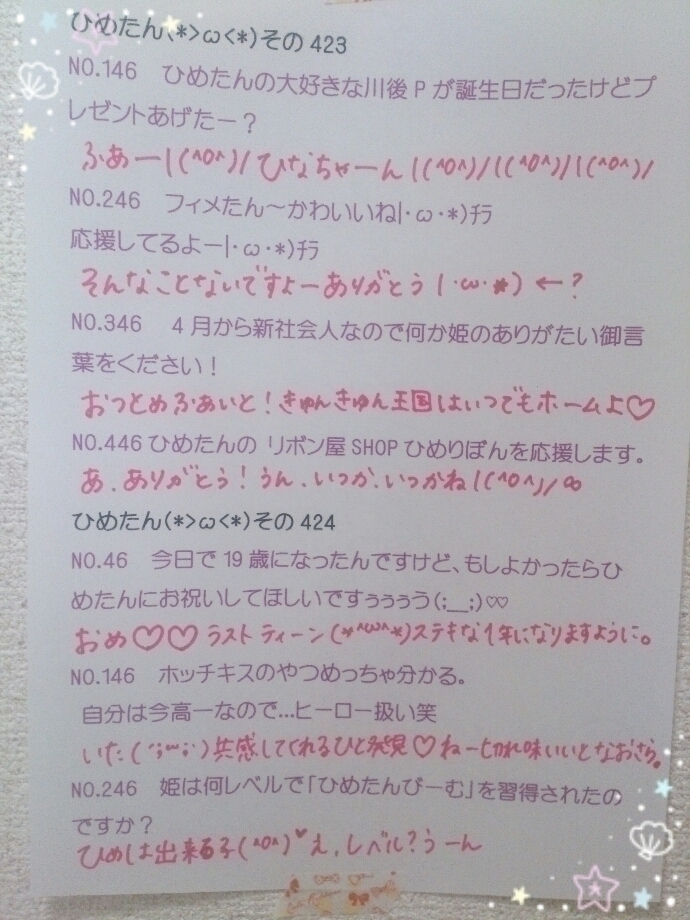 ひめたん(*>ω<*)その423
NO.146 ひめたんの大好きな川後Pが誕生日だったけどプ
レゼントあげたー？
ふぁー\(^o^)/ひなちゃーん\(^o^)/\(^o^)/\(^o^)/
NO.246 フィメたん～かわいいね|・ω・*)ﾁﾗ
応援してるよー|・ω・*)ﾁﾗ
そんなことないですよーありがとう|・ω・*)←？
NO.346 4月から新社会人なので何か姫のありがたい御言
葉をください！
おつとめふぁいと！きゅんきゅん王国はいつでもホームよ♡
NO.446ひめたんの リボン屋SHOPひめりぼんを応援します。
あ、ありがとう！うん、いつか、いつかね\(^o^)/∞
ひめたん(*>ω<*)その424
NO.46 今日で19歳になったんですけど、もしよかったらひ
めたんにお祝いしてほしいですぅぅぅう(;__;)♡♡
おめ♡♡ラストティーン(*^ω^*)ステキな1年になりますように。
NO.146 ホッチキスのやつめっちゃ分かる。
自分は今高一なので…ヒーロー扱い笑
いた(´;ω;`)共感してくれるひと発見♡ねー切れ味いいとなおさら。
NO.246 姫は何レベルで「ひめたんびーむ」を習得されたの
ですか？
ひめは出来る子(^o^)♥え、レベル？うーん